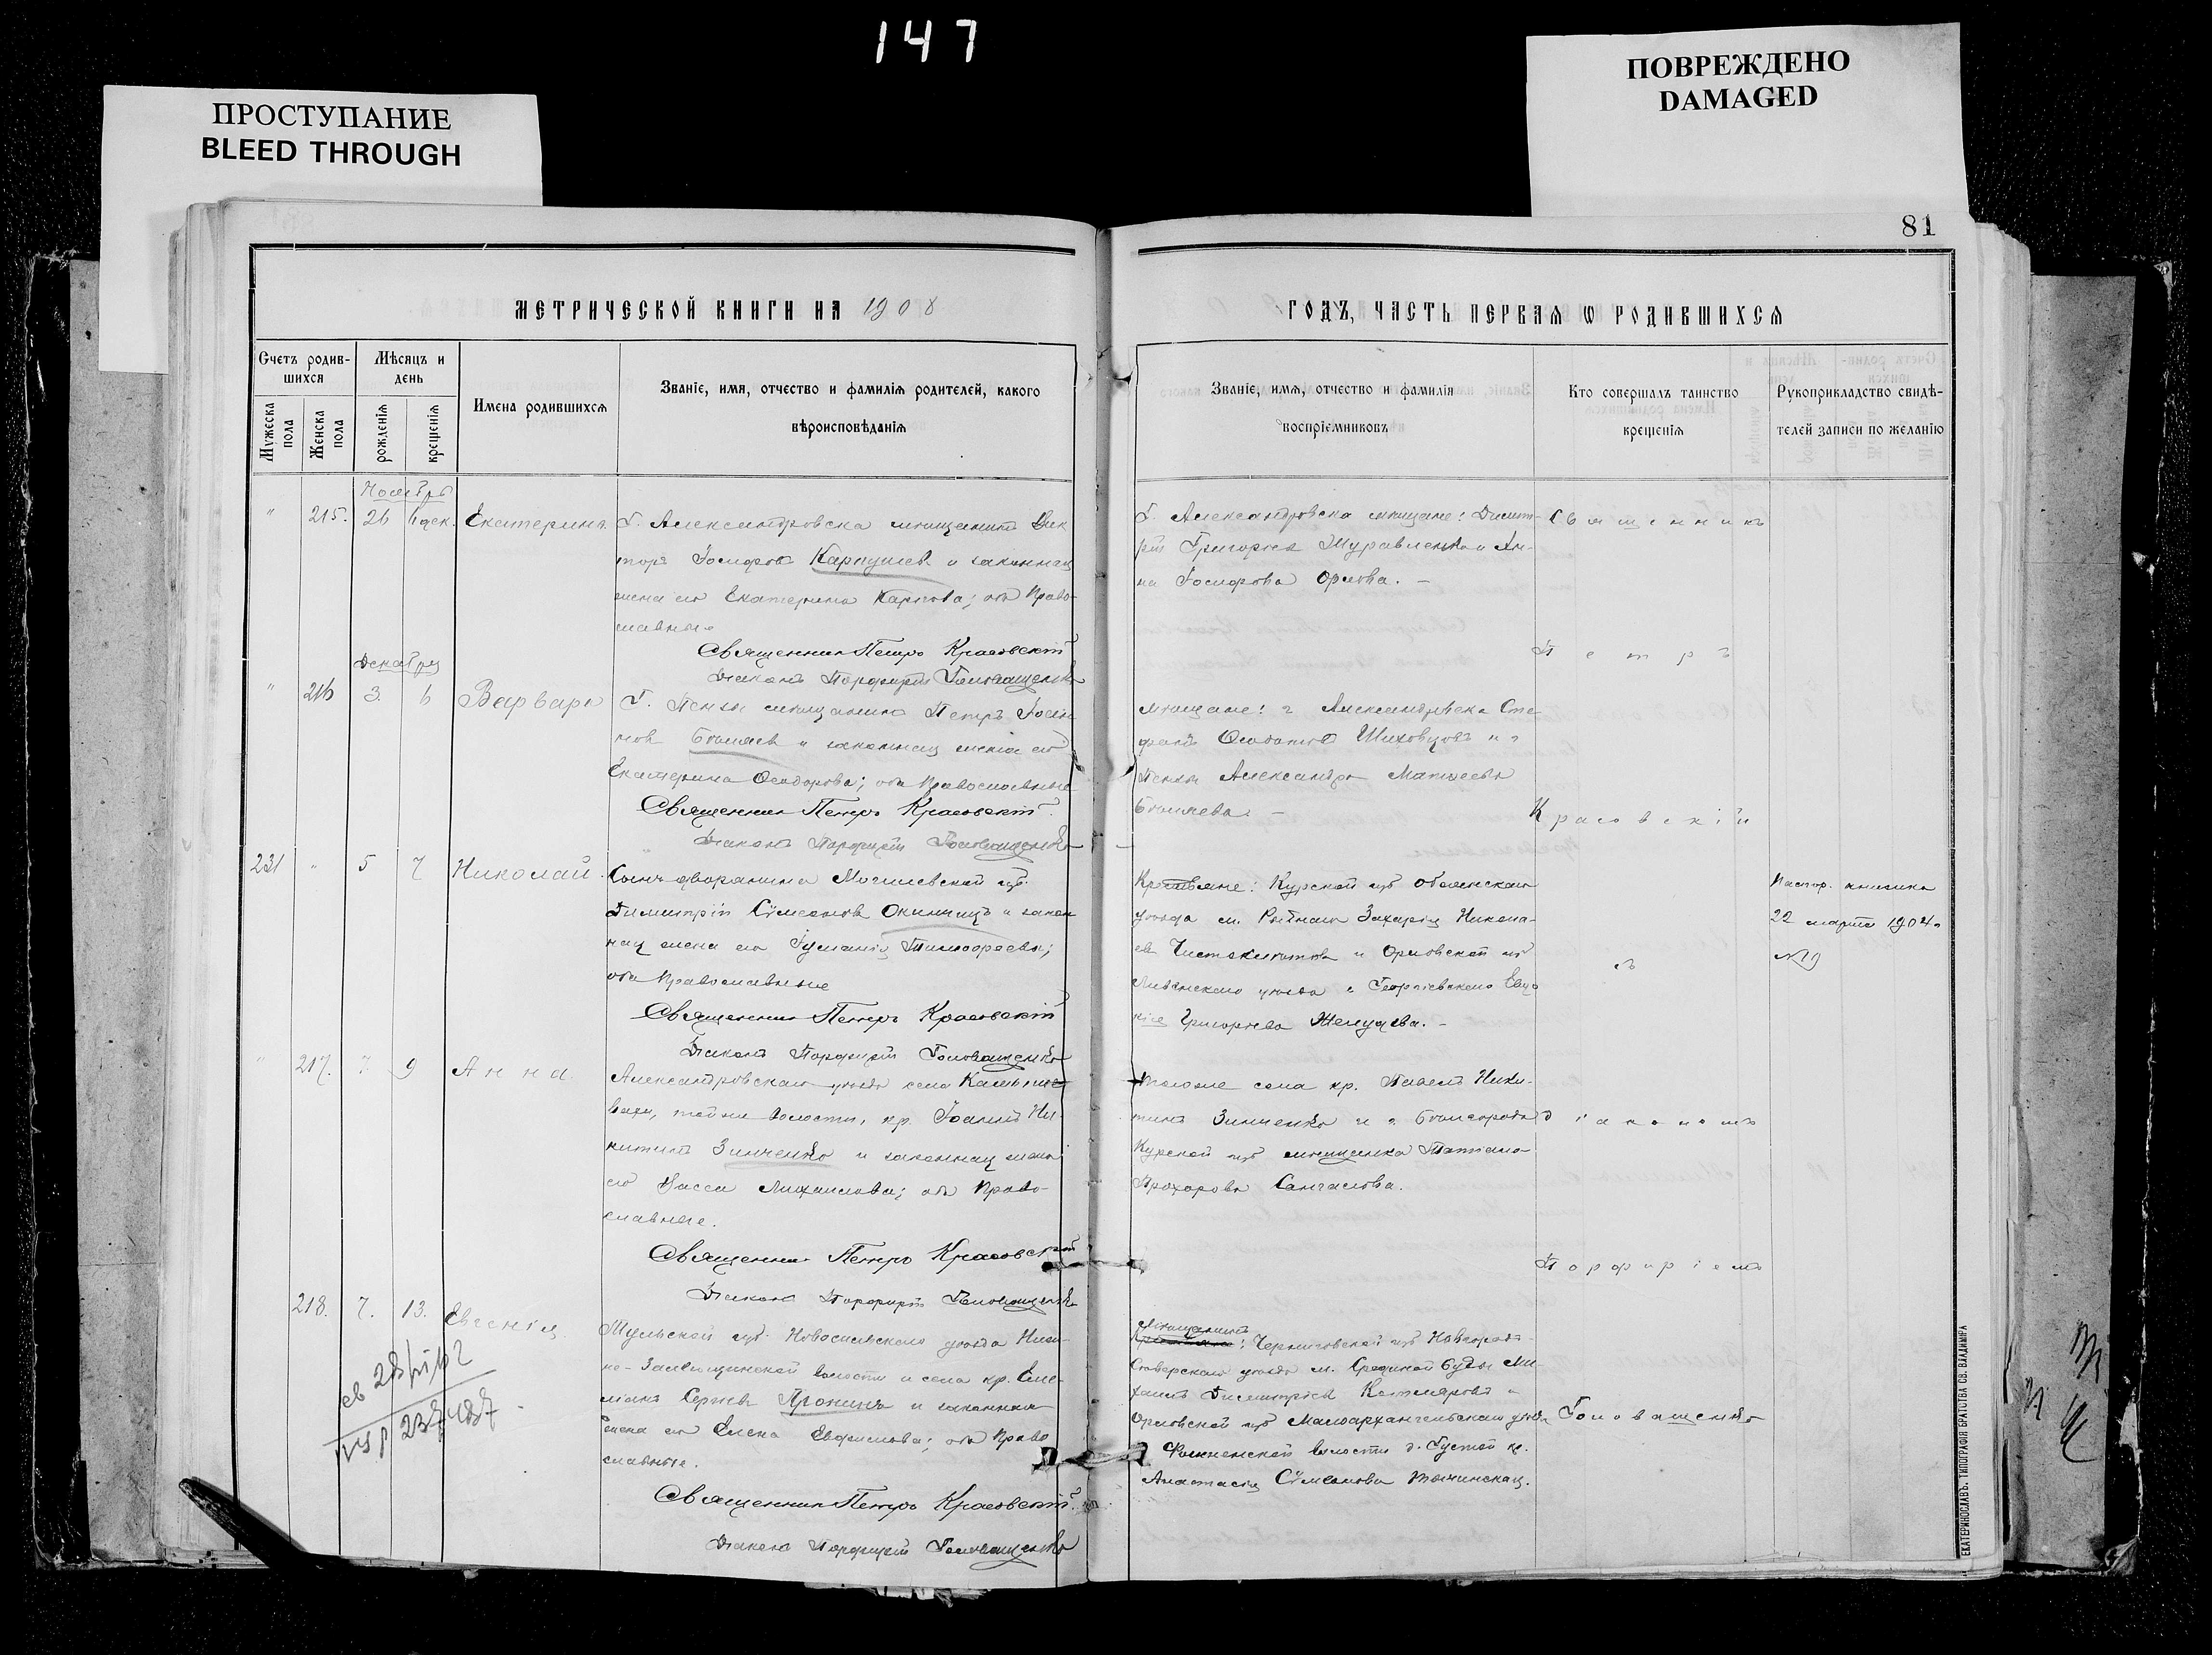 147
ПРОСТУПАНИЕ
BLEED THROUGH
ПОВРЕЖДЕНО
DAMAGED
81
МЕТРИЧЕСКОЙ КНИГИ НА 1908
ГОДЪ, ЧАСТЬ ПЕРВАЯ Ѡ РОДИВШИХСЯ
Счетъ родив-
шихся
Мѣсяцъ и
день
Мужеска пола
Женска пола
рожденія
крещенія
Имена родившихся
Званіе, имя, отчество и фамилія родителей, какого
вѣроисповѣданія
Званіе, имя, отчество и фамилія
воспріемниковъ
Кто совершалъ таинство
крещенія
Рукоприкладство свидѣ-
телей записи по желанію
Ноября
" 215. 26 1 дек. Екатерина.
Г. Александровска мѣщанинъ Вик
торъ Іосифовъ Карпушев и законная
жена его Екатерина Карпова; оба Право-
славные
Священникъ Петръ Красовскій
Діаконъ Порфирій Головащенко
Г. Александровска мѣщане: Димит-
рій Григорьев Журавленко и Ан-
на Іосифова Орлова. -
Священникъ
Петръ
Красовскій
съ
діакономъ
Порфиріемъ
Головащенко
Декабря
" 216 3. 6 Варвара
Г. Пензы мѣщанинъ Петръ Іоан
нов Бѣляев и законная жена его
Екатерина Ѳеодорова; оба Православные
Священникъ Петръ Красовскій.
Діаконъ Порфирій Головащенко
мѣщане: г. Александровска Сте
фанъ Шиховцовъ и г.
Пензы Александра Матѳеева
Бѣляева. -
231 " 5 7 Николай.
Сынъ дворянина Могилевской губ.
Димитрій Сѵмеонов Окинчицъ и закон
ная жена его Іуліанія Тимоѳеева;
оба Православные
Священникъ Петръ Красовскій
Діаконъ Порфирій Головащенко
Крестьяне: Курской губ. Обоянскаго
уѣзда м. Захарія Никола-
ев и Орловской губ
Ливенскаго уѣзда с. Георгіевскаго Евдо
кія Григорьева
Паспор. книжка
22 марта 1904 г.
№ 9
" 217. 7. 9 Анна.
Александровскаго уѣзда села Камыше
вахи, той же волости, кр. Іоаннъ Ни-
китинъ Зинченко и законная жена
его Васса Михаилова; оба Право-
славные.
Священникъ Петръ Красовскій
Діаконъ Порфирій Головащенко
того же села кр. Павелъ Ники-
тинъ Зинченко и г. Бѣлгорода
Курской губ мѣщанка Татіана
Прохорова
218. 7. 13. Евгенія
Тульской губ. Новосильскаго уѣзда
волости и села кр. Еме-
ліанъ Сергѣев Пронинъ и законная
жена его Елена; оба Право
славные.
Священникъ Петръ Красовскій.
Діаконъ Порфирій Головащенко
Мѣщанинъ
: Черниговской губ Новгород-
Сѣверскаго уѣзда м. Середина Буда Ми-
хаилъ Димитріев Котляровъ и
Орловской губ Малоархангельскаго уѣзда
волости д. Густой кр.
Анастасія Сѵмеонова
ЕКАТЕРИНОСЛАВЪ. ТИПОГРАФІЯ БРАТСТВА СВ. ВЛАДИМІРА